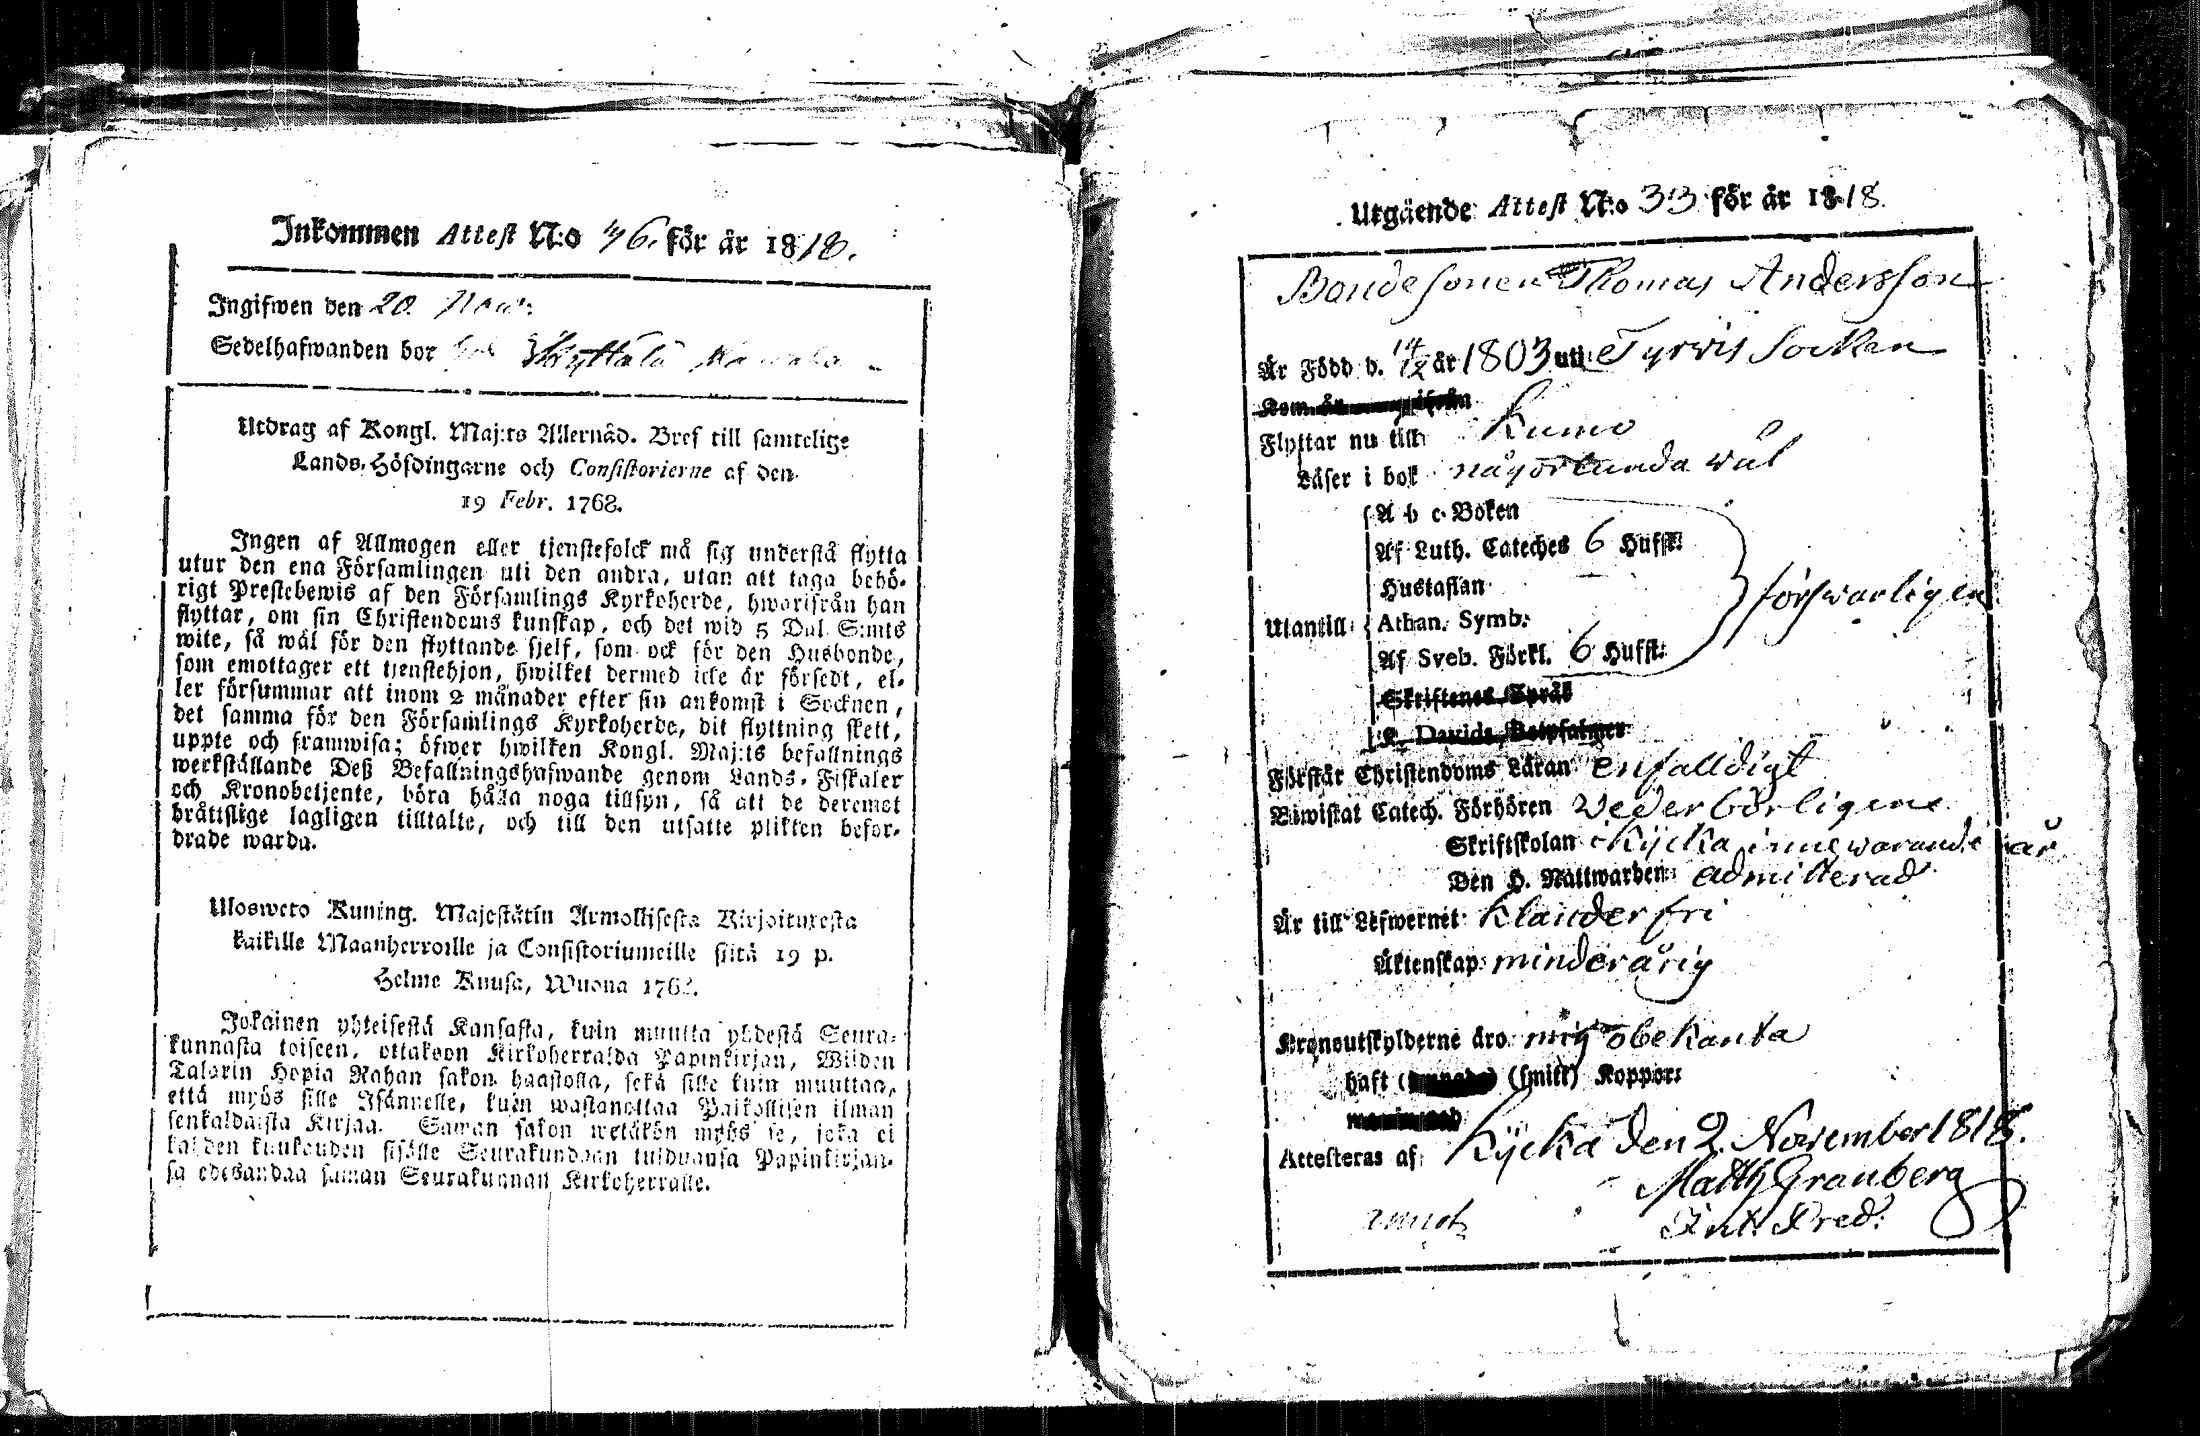 Inkommen Attest N:o 46. för år 1818.
Ingifwen den 20. Nov:
Sedelhafwanden bor Kyttälä
Utdrag af Kongl. Maj:ts Allernåd. Bref till samtelige
Lands-Höfdingarne och Consistorierne af den
19 Febr. 1768.
Ingen af Allmogen eller tjenstefolck må sig understå flytta
utur den ena Församlingen uti den andra, utan att taga behö-
rigt Prestebewis af den Församlings Kyrkoherde, hwarifrån han
flyttar, om sin Christendoms kunskap, och det wid 5 Dal. S:mts
wite, så wäl för den flyttande sjelf, som ock för den Husbonde,
som emottager ett tjenstehjon, hwilket dermed icke är försedt, el-
ler försummar att inom 2 månader efter sin ankomst i Socknen,
det samma för den Församlings Kyrkoherde, dit flyttning skett,
uppte och framwisa; öfwer hwilken Kongl. Maj:ts befallnings
werkställande Deß Befallningshafwande genom Lands-Fiskaler
och Kronobetjente, böra hålla noga tillsyn, så att de deremot
bråttslige lagligen tilltalte, och till den utsatte plikten befor-
drade warda.
Ulosweto Kuning. Majestätin Armollisesta Kirjoituxesta
kaikille Maanherroille ja Consistoriumeille siitä 19 p.
Helme Kuusa, Wuona 1768.
Jokainen yhteisestä Kansasta, kuin muutta yhdestä Seura-
kunnasta toiseen, ottakoon Kirkoherralda Papinkirjan, Wiiden
Talarin Hopia Rahan sakon haastolla, sekä sille kuin muuttaa,
että myös sille Isännelle, kuin wastanottaa Paikollisen ilman
senkaldaista Kirjaa. Saman sakon wetäkön myös se, joka ei
kahden kuukauden sisälle Seurakundaan tulduansa Papinkirjan-
sa edesandaa saman Seurakunnan Kirkoherralle.
Utgående Attest N:o 33 för år 1818.
Bondesonen Thomas Andersson
Är Född d. 14/2 år 1803 uti Tyrvis Socken
Flyttar nu till Kumo
Läser i bok någorlunda wäl
A b c Boken
Af Luth. Cateches 6 Hufst:
Hustaflan
Utantill Athan. Symb. försvarligen
Af Sveb. Förkl. 6 Hufst:
Skriftenes Språk
K. Davids Botpsalmer
Förstår Christendoms Läran enfalldigt
Biwistat Catech. Förhören Vederbörligene
Skriftskolan i Kijcka innewarande år
Den H. Nattwarden admitterad
Är till Lefwernet klanderfri
Äktenskap minderårig
Kronoutskylderne äro mig obekanta
haft (smitt) Koppor
Attesteras af Kijcka den 2. November 1818.
Matth Granberg
Int. Pred.